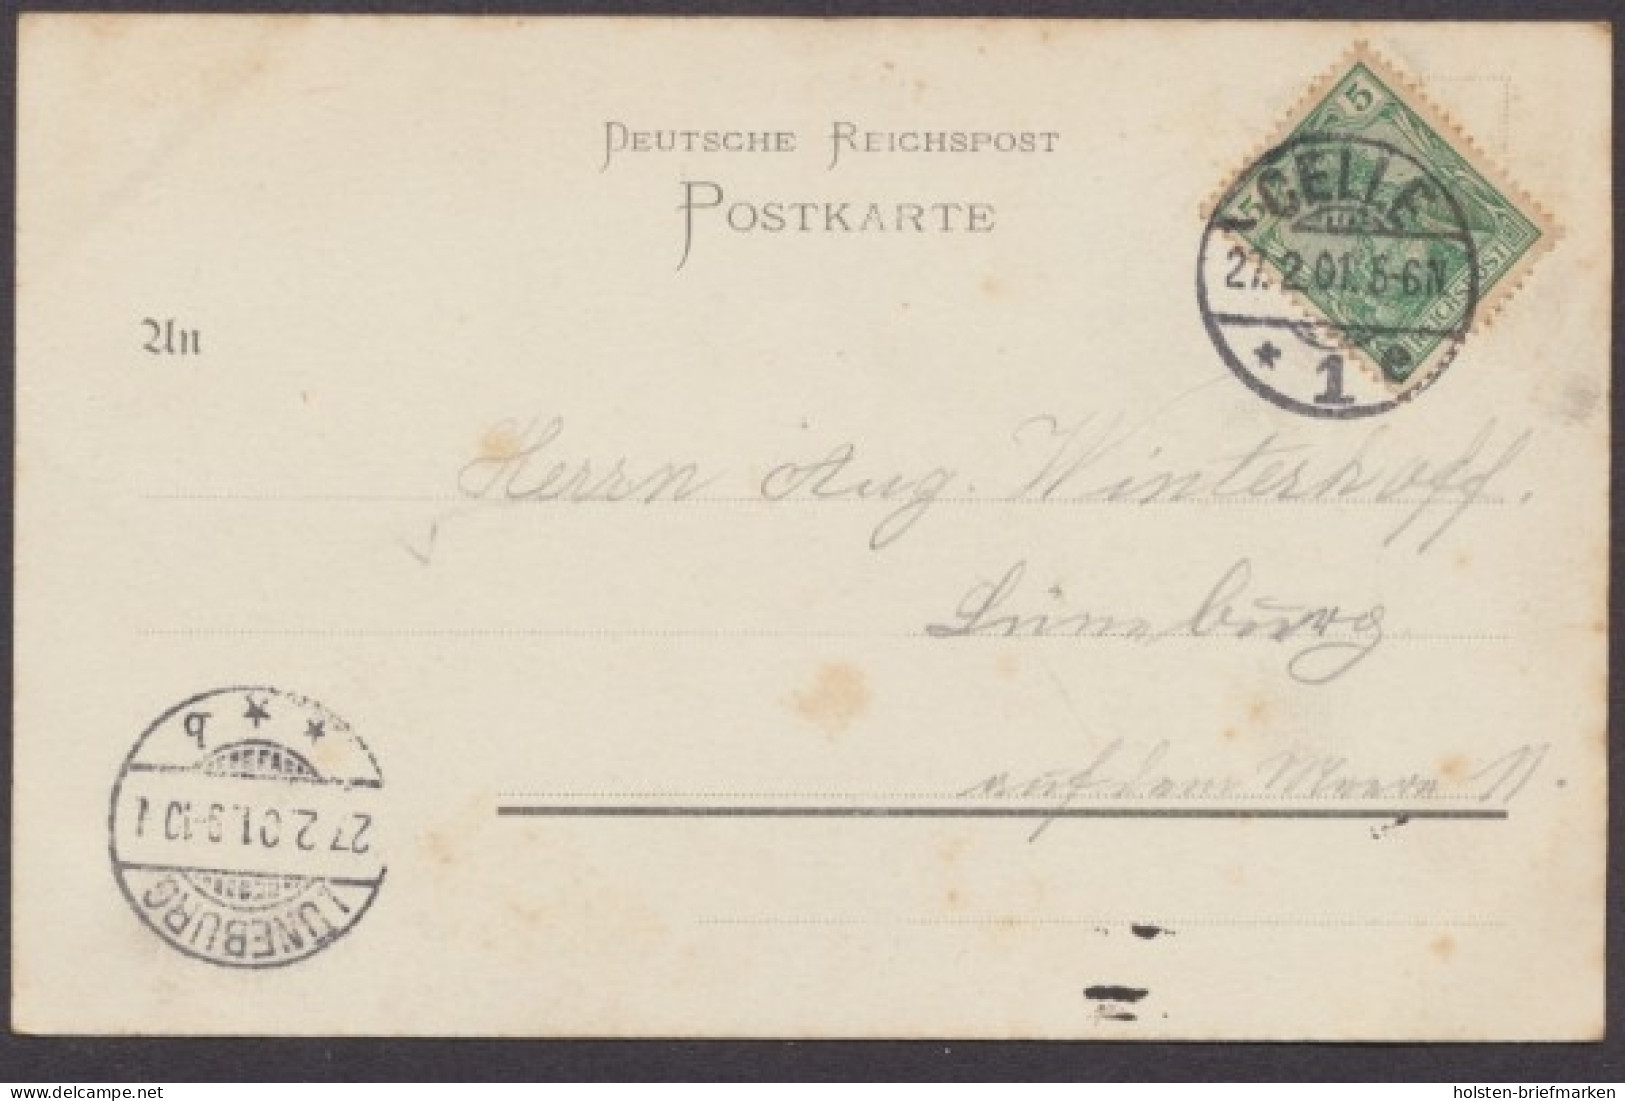 DEUTSCHE REICHSPOST
POSTKARTE
5
5
REICHSPOST
CELLE
27.2.01. 5-6N
* 1 e
An
Herrn Aug. Winterhoff,
Lüneburg
auf dem Meere 11.
LÜNEBURG
27.2.01. 9-10
* * b
delcampe.net
holsten-briefmarken